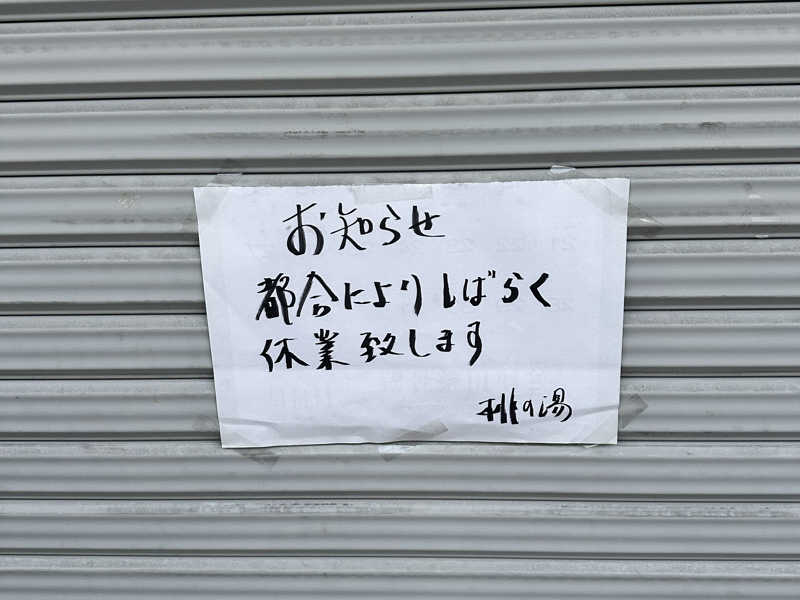 お知らせ
都合によりしばらく
休業致します
桃の湯